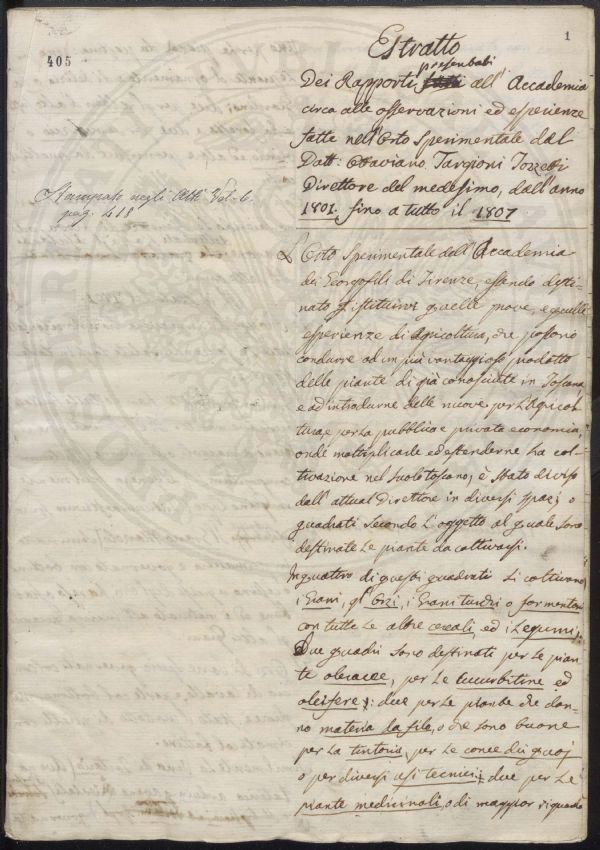 1
405
Estratto
presentati
Dei Rapporti all' Accademia
circa alle osservazioni ed esperienze
fatte nell'Orto Sperimentale dal
Dott: Ottaviano Targioni Tozzetti
Direttore del medesimo, dall'anno
1801. fino a tutto il 1807
Stampato negli Atti Vol. 6.
pag. 418
L'Orto Sperimentale dell'Accademia
dei Georgofili di Firenze, essendo desti-
nato p istituirvi quelle prove, e quelle
esperienze di Agricoltura, che possono
condurre ad un più vantaggioso prodotto
delle piante di già conosciute in Toscana
e ad introdurne delle nuove per l'Agricol-
tura, e per la pubblica e privata economia,
onde moltiplicarle ed estenderne la col-
tivazione nel suolo toscano, è stato diviso
dall'attual Direttore in diversi spazj o
quadrati secondo l'oggetto al quale sono
destinate le piante da coltivarsi.
In quattro di questi quadrati si coltivano
i Grani, gl'Orzi, i Grani turchi o formentoni
con tutte le altre cereali, ed i Legumi;
Due quadri sono destinati per le pian-
te oleracee, per le Cucurbitine ed
oleifere; due per le piante che dan-
no materia da filo, o che sono buone
per la tintoria, per le conce dei quoj
o per diversi usi tecnici; due per le
piante medicinali, o di maggior riguardo